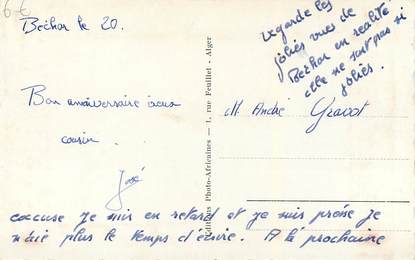 6 €
Bechar le 20.
Bon anniversaire
cousin.
José
regarde les
jolies vues de
Bechar en realité
elle ne sont pas si
jolies.
M. André Gravot
Editions Photo-Africaines — 1, rue Feuillet - Alger
excuse je suis en retard et je suis pressé je
n'aie plus le temps d'écrire. A la prochaine